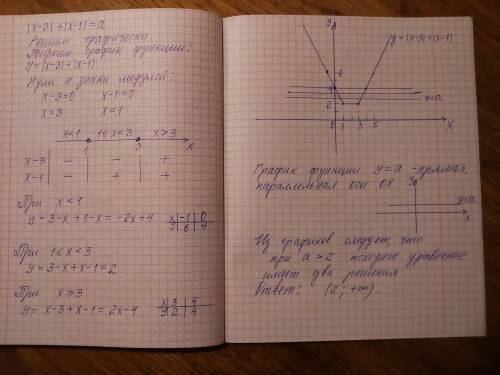 |x-3|+|x-1|=a
Решим графически
Строим график функции:
y=|x-3|+|x-1|
Нули и знаки модулей:
x-3=0 x-1=0
x=3 x=1
x<1 1≤x<3 x≥3
1 3 x
x-3 - - +
x-1 - + +
При x<1
y=3-x+1-x=-2x+4
x -1 0
y 6 4
При 1≤x<3
y=3-x+x-1=2
При x≥3
y=x-3+x-1=2x-4
x 3 4
y 2 4
y
y=|x-3|+|x-1|
6
4
y=a
2
0 1 3 5 x
График функции y=a -прямая,
параллельная оси OX.
y
y=a
x
Из графиков следует, что
при a>2 исходное уравнение
имеет два решения
Ответ: (2; +∞).